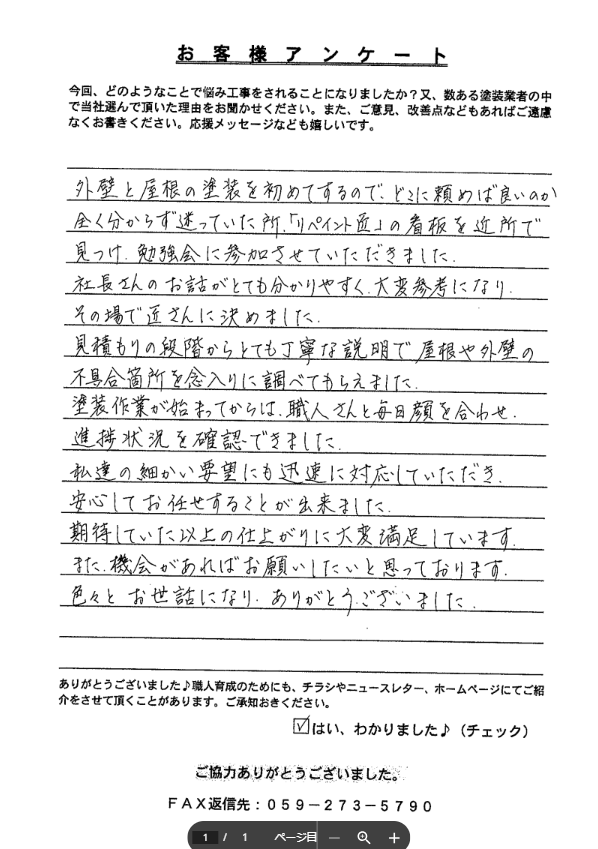 お客様アンケート
今回、どのようなことで悩み工事をされることになりましたか？又、数ある塗装業者の中
で当社選んで頂いた理由をお聞かせください。また、ご意見、改善点などもあればご遠慮
なくお書きください。応援メッセージなども嬉しいです。
外壁と屋根の塗装を初めてするので、どこに頼めば良いのか
全く分からず迷っていた所、「リペイント匠」の看板を近所で
見つけ、勉強会に参加させていただきました。
社長さんのお話がとても分かりやすく、大変参考になり、
その場で匠さんに決めました。
見積もりの段階からとても丁寧な説明で屋根や外壁の
不具合箇所を念入りに調べてもらえました。
塗装作業が始まってからは、職人さんと毎日顔を合わせ、
進捗状況を確認できました。
私達の細かい要望にも迅速に対応していただき、
安心してお任せすることが出来ました。
期待していた以上の仕上がりに大変満足しています。
また、機会があればお願いしたいと思っております。
色々とお世話になり、ありがとうございました。
ありがとうございました♪職人育成のためにも、チラシやニュースレター、ホームページにてご紹
介をさせて頂くことがあります。ご承知おきください。
☑はい、わかりました♪（チェック）
ご協力ありがとうございました。
ＦＡＸ返信先：０５９－２７３－５７９０
1 / 1 ページ目